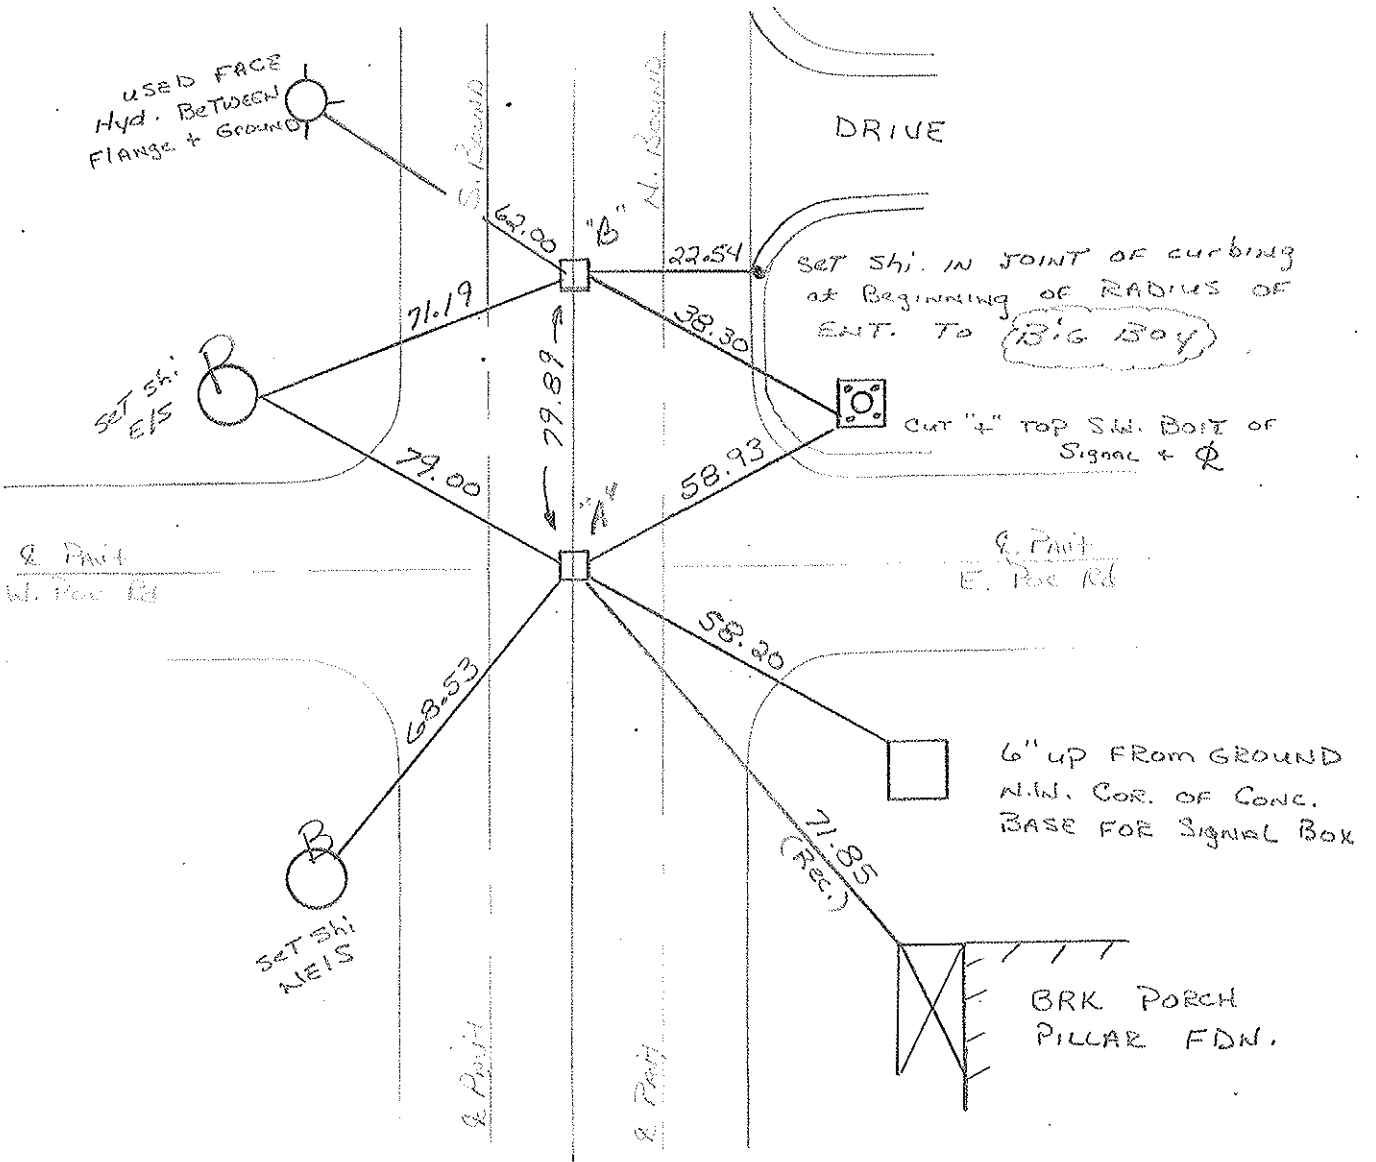 USED FACE
Hyd. BETWEEN
FLANGE + GROUND
S. BOUND
N. BOUND
DRIVE
62.00
"B"
22.54
SET Shi. IN JOINT OF curbing
at Beginning OF RADIUS OF
ENT. TO BIG BOY
71.19
38.30
SET Shi
E/S
79.89
CUT "+" TOP S.W. BOLT OF
Signal +
79.00
58.93
"A"
℄ Pm't
W. Poe Rd
℄ Pm't
E. Poe Rd
58.20
68.53
6" up FROM GROUND
N.W. COR. OF CONC.
BASE FOR SIGNAL BOX
71.85
(Rec.)
SET Shi
NE/S
BRK PORCH
PILLAR FDN.
℄ Pm't
℄ Pm't